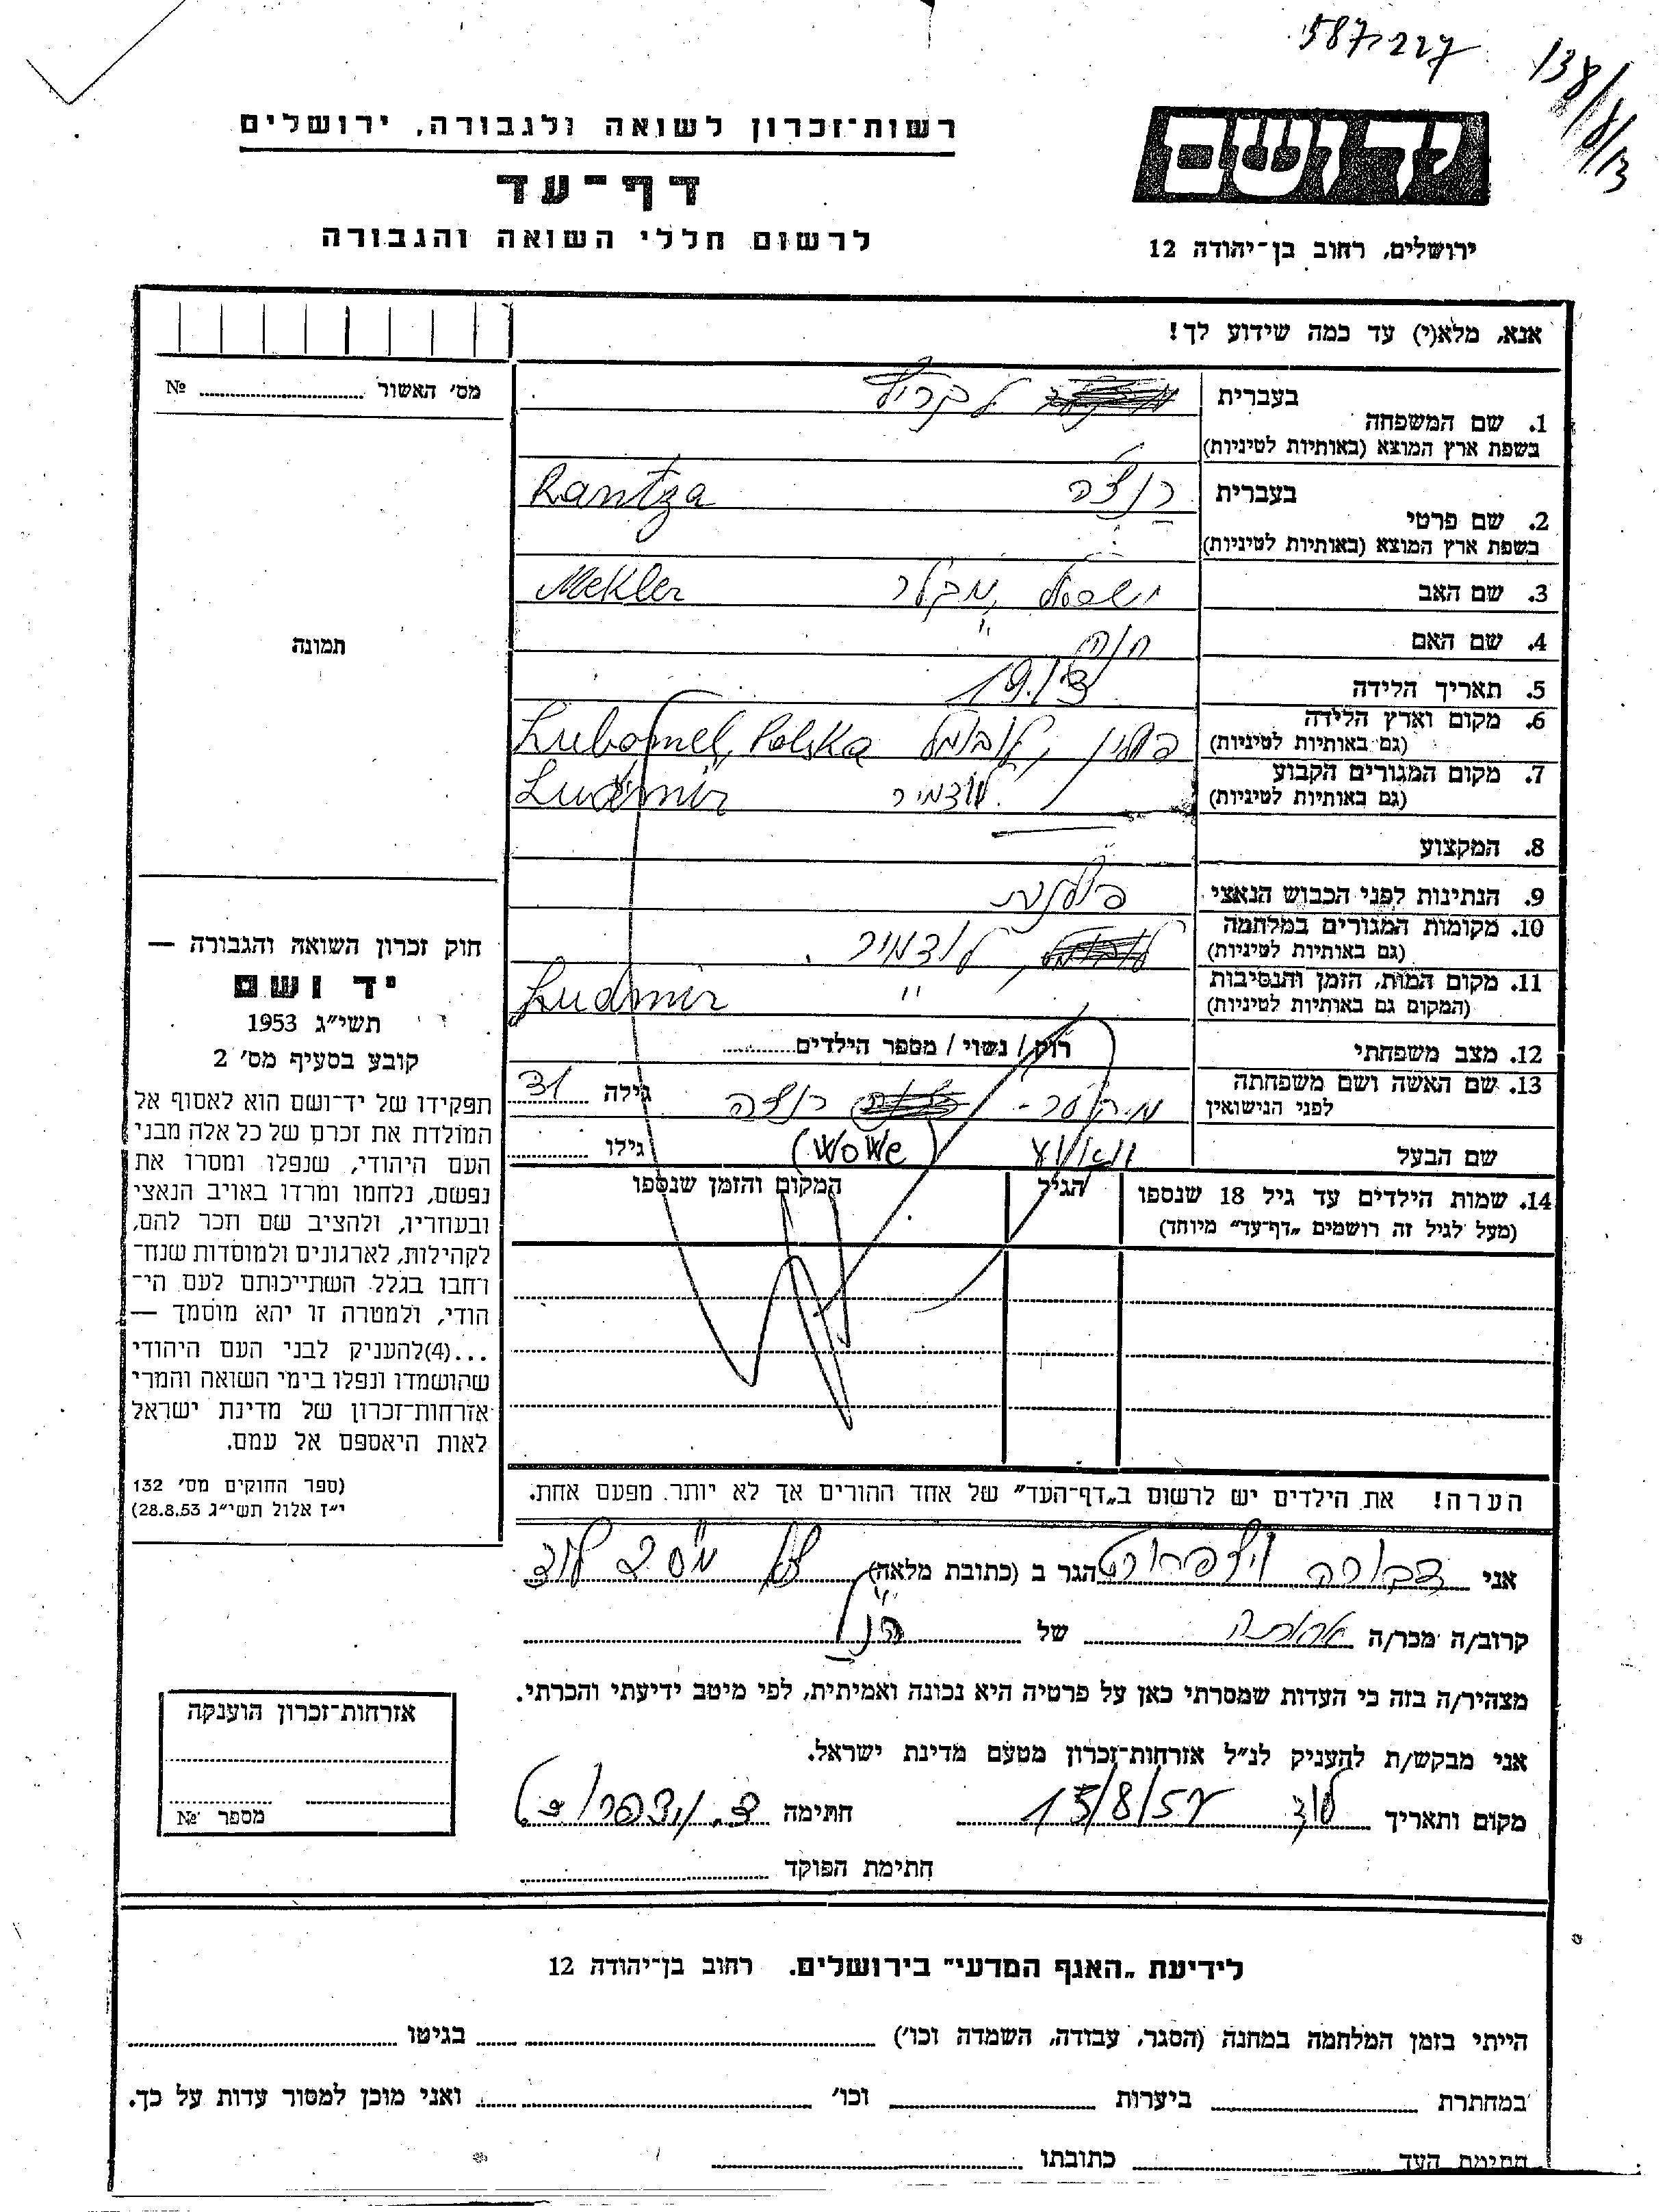 587227
138/8/13
רשות־זכרון לשואה ולגבורה, ירושלים
דף־עד
לרשום חללי השואה והגבורה
יד ושם
ירושלים, רחוב בן־יהודה 12
אנא, מלא(י) עד כמה שידוע לך!
מס׳ האשור №
תמונה
1. שם המשפחה
בעברית
בשפת ארץ המוצא (באותיות לטיניות)
2. שם פרטי
בעברית רנצה Rantza
בשפת ארץ המוצא (באותיות לטיניות)
3. שם האב ישראל מקלר Mekler
4. שם האם חנה
5. תאריך הלידה
6. מקום וארץ הלידה פולין, לובומל Lubomel, Polska
(גם באותיות לטיניות)
7. מקום המגורים הקבוע לודמיר Ludmir
(גם באותיות לטיניות)
8. המקצוע
9. הנתינות לפני הכבוש הנאצי פולנית
10. מקומות המגורים במלחמה לודמיר
(גם באותיות לטיניות)
11. מקום המות, הזמן והנסיבות " Ludmir
(המקום גם באותיות לטיניות)
12. מצב משפחתי רוק / נשוי / מספר הילדים
13. שם האשה ושם משפחתה רנצה גילה
לפני הנישואין
שם הבעל וואווע (Wowe) גילו
14. שמות הילדים עד גיל 18 שנספו הגיל המקום והזמן שנספו
(מעל לגיל זה רושמים „דף־עד” מיוחד)
הערה! את הילדים יש לרשום ב„דף־העד” של אחד ההורים אך לא יותר מפעם אחת.
חוק זכרון השואה והגבורה —
יד ושם
תשי״ג 1953
קובע בסעיף מס׳ 2
תפקידו של יד־ושם הוא לאסוף אל
המולדת את זכרם של כל אלה מבני
העם היהודי, שנפלו ומסרו את
נפשם, נלחמו ומרדו באויב הנאצי
ובעוזריו, ולהציב שם וזכר להם,
לקהילות, לארגונים ולמוסדות שנח־
רחבו בגלל השתייכותם לעם הי־
הודי, ולמטרה זו יהא מוסמך —
...(4)להעניק לבני העם היהודי
שהושמדו ונפלו בימי השואה והמרי
אזרחות־זכרון של מדינת ישראל
לאות היאספם אל עמם.
(ספר החוקים מס׳ 132
י״ז אלול תשי״ג 28.8.53)
אני דבורה הגר ב (כתובת מלאה) לוד
קרוב/ה מכר/ה אחותה של הנ״ל
מצהיר/ה בזה כי העדות שמסרתי כאן על פרטיה היא נכונה ואמיתית, לפי מיטב ידיעתי והכרתי.
אני מבקש/ת להעניק לנ״ל אזרחות־זכרון מטעם מדינת ישראל.
מקום ותאריך לוד 15/8/57 חתימה
חתימת הפוקד
אזרחות־זכרון הוענקה
מספר №
לידיעת „האגף המדעי” בירושלים. רחוב בן־יהודה 12
הייתי בזמן המלחמה במחנה (הסגר, עבודה, השמדה וכו׳) בגיטו
במחתרת ביערות וכו׳ ואני מוכן למסור עדות על כך.
חתימת העד כתובתו